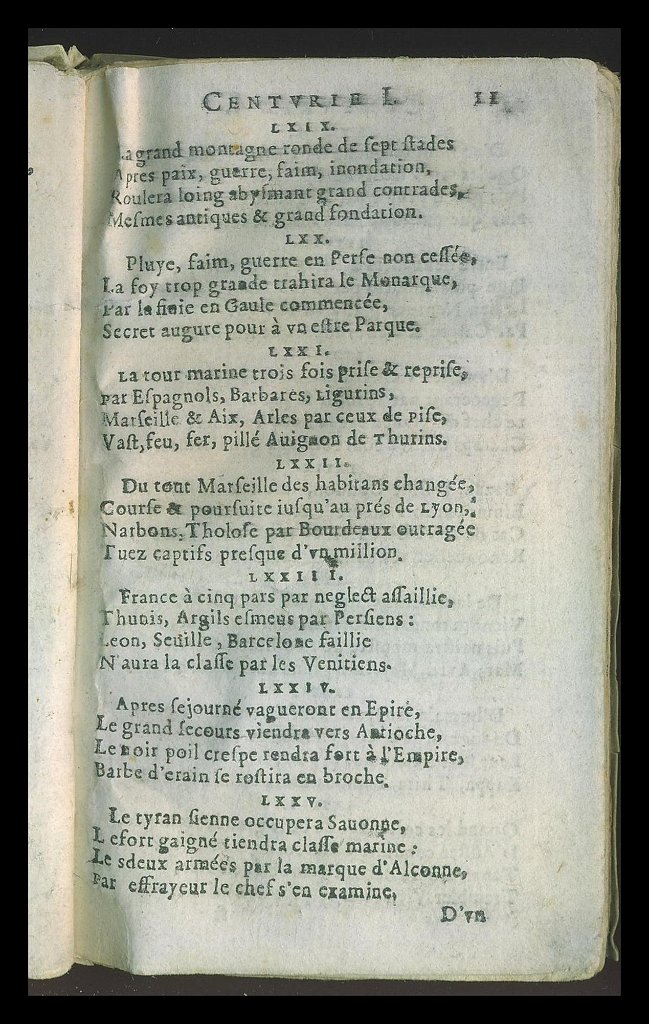 CENTVRIE I. 11
LXIX.
La grand montagne ronde de ſept ſtades
Apres paix, guerre, faim, inondation,
Roulera loing abyſmant grand contrades,
Meſmes antiques & grand fondation.
LXX.
Pluye, faim, guerre en Perſe non ceſſée,
La foy trop grande trahira le Monarque,
Par la finie en Gaule commencée,
Secret augure pour à vn eſtre Parque.
LXXI.
La tour marine trois fois priſe & repriſe,
par Eſpagnols, Barbares, Ligurins,
Marſeille & Aix, Arles par ceux de Piſe,
Vaſt, feu, fer, pillé Auignon de Thurins.
LXXII.
Du tout Marſeille des habitans changée,
Courſe & pourſuite iuſqu'au prés de Lyon,
Narbons, Tholoſe par Bourdeaux outragée
Tuez captifs preſque d'vn million.
LXXIII.
France à cinq pars par neglect aſſaillie,
Thunis, Argils eſmeus par Perſiens :
Leon, Seuille, Barcelone faillie
N'aura la claſſe par les Venitiens.
LXXIV.
Apres ſejourné vagueront en Epire,
Le grand ſecours viendra vers Antioche,
Le noir poil creſpe tendra fort à l'Empire,
Barbe d'erain ſe roſtira en broche.
LXXV.
Le tyran ſienne occupera Sauonne,
L efort gaigné tiendra claſſe marine :
Le sdeux armées par la marque d'Alconne,
Par effrayeur le chef s'en examine,
D'vn